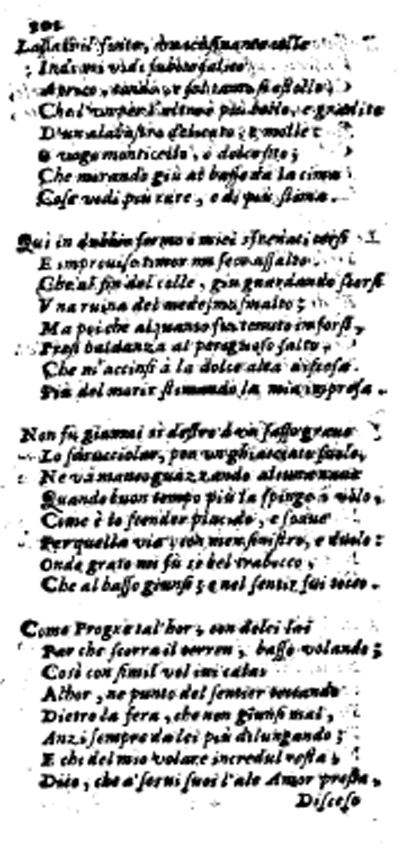 202
Indi mi vidi subito
Che l'un per l'altro è più bello, e gradito
D'un alabastro delicato, e molle:
O vago monticello, o dolce sito;
Che mirando giù al basso da la cima
Cose vedi più rare, e di più stima.
Qui in dubbio fermo i miei sfrenati corsi
E improuiso timor mi fece assalto.
Che al fin del colle, giu guardando scorsi
Vna ruina del medesmo smalto;
Ma poi che alquanto fui tenuto inforsi,
Presi baldanza al periglioso salto,
Che m'accinsi à la dolce alta
Più del morir stimando la mia impresa.
Non fù giamai si destro d'un sasso graue
Lo sdrucciolar, per un ghiacciato suolo,
Ne và
Quando buon tempo più la spinge à volo,
Come è lo scender placido, e soaue
Per quella via; con men sinistro, e duolo:
Onde grato mi fù si bel trabocco,
Che al basso giunsi; e nel sentir fui tocco.
Come Progne tal'hor, con dolci lai
Par che scorra il terren, basso volando;
Così con simil vol ini calai
Alhor, ne punto del sentier
Dietro la fera, che non giunsi mai,
Anzi sempre da lei più dilungando;
E chi del mio volare incredul resta,
Dico, che a' serui suoi l'ale Amor presta,
Disceso